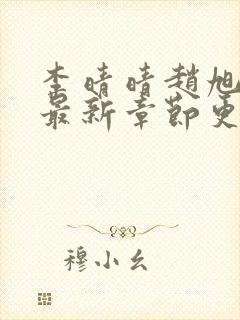 李晴晴趙旭
最新章節更
穆小幺